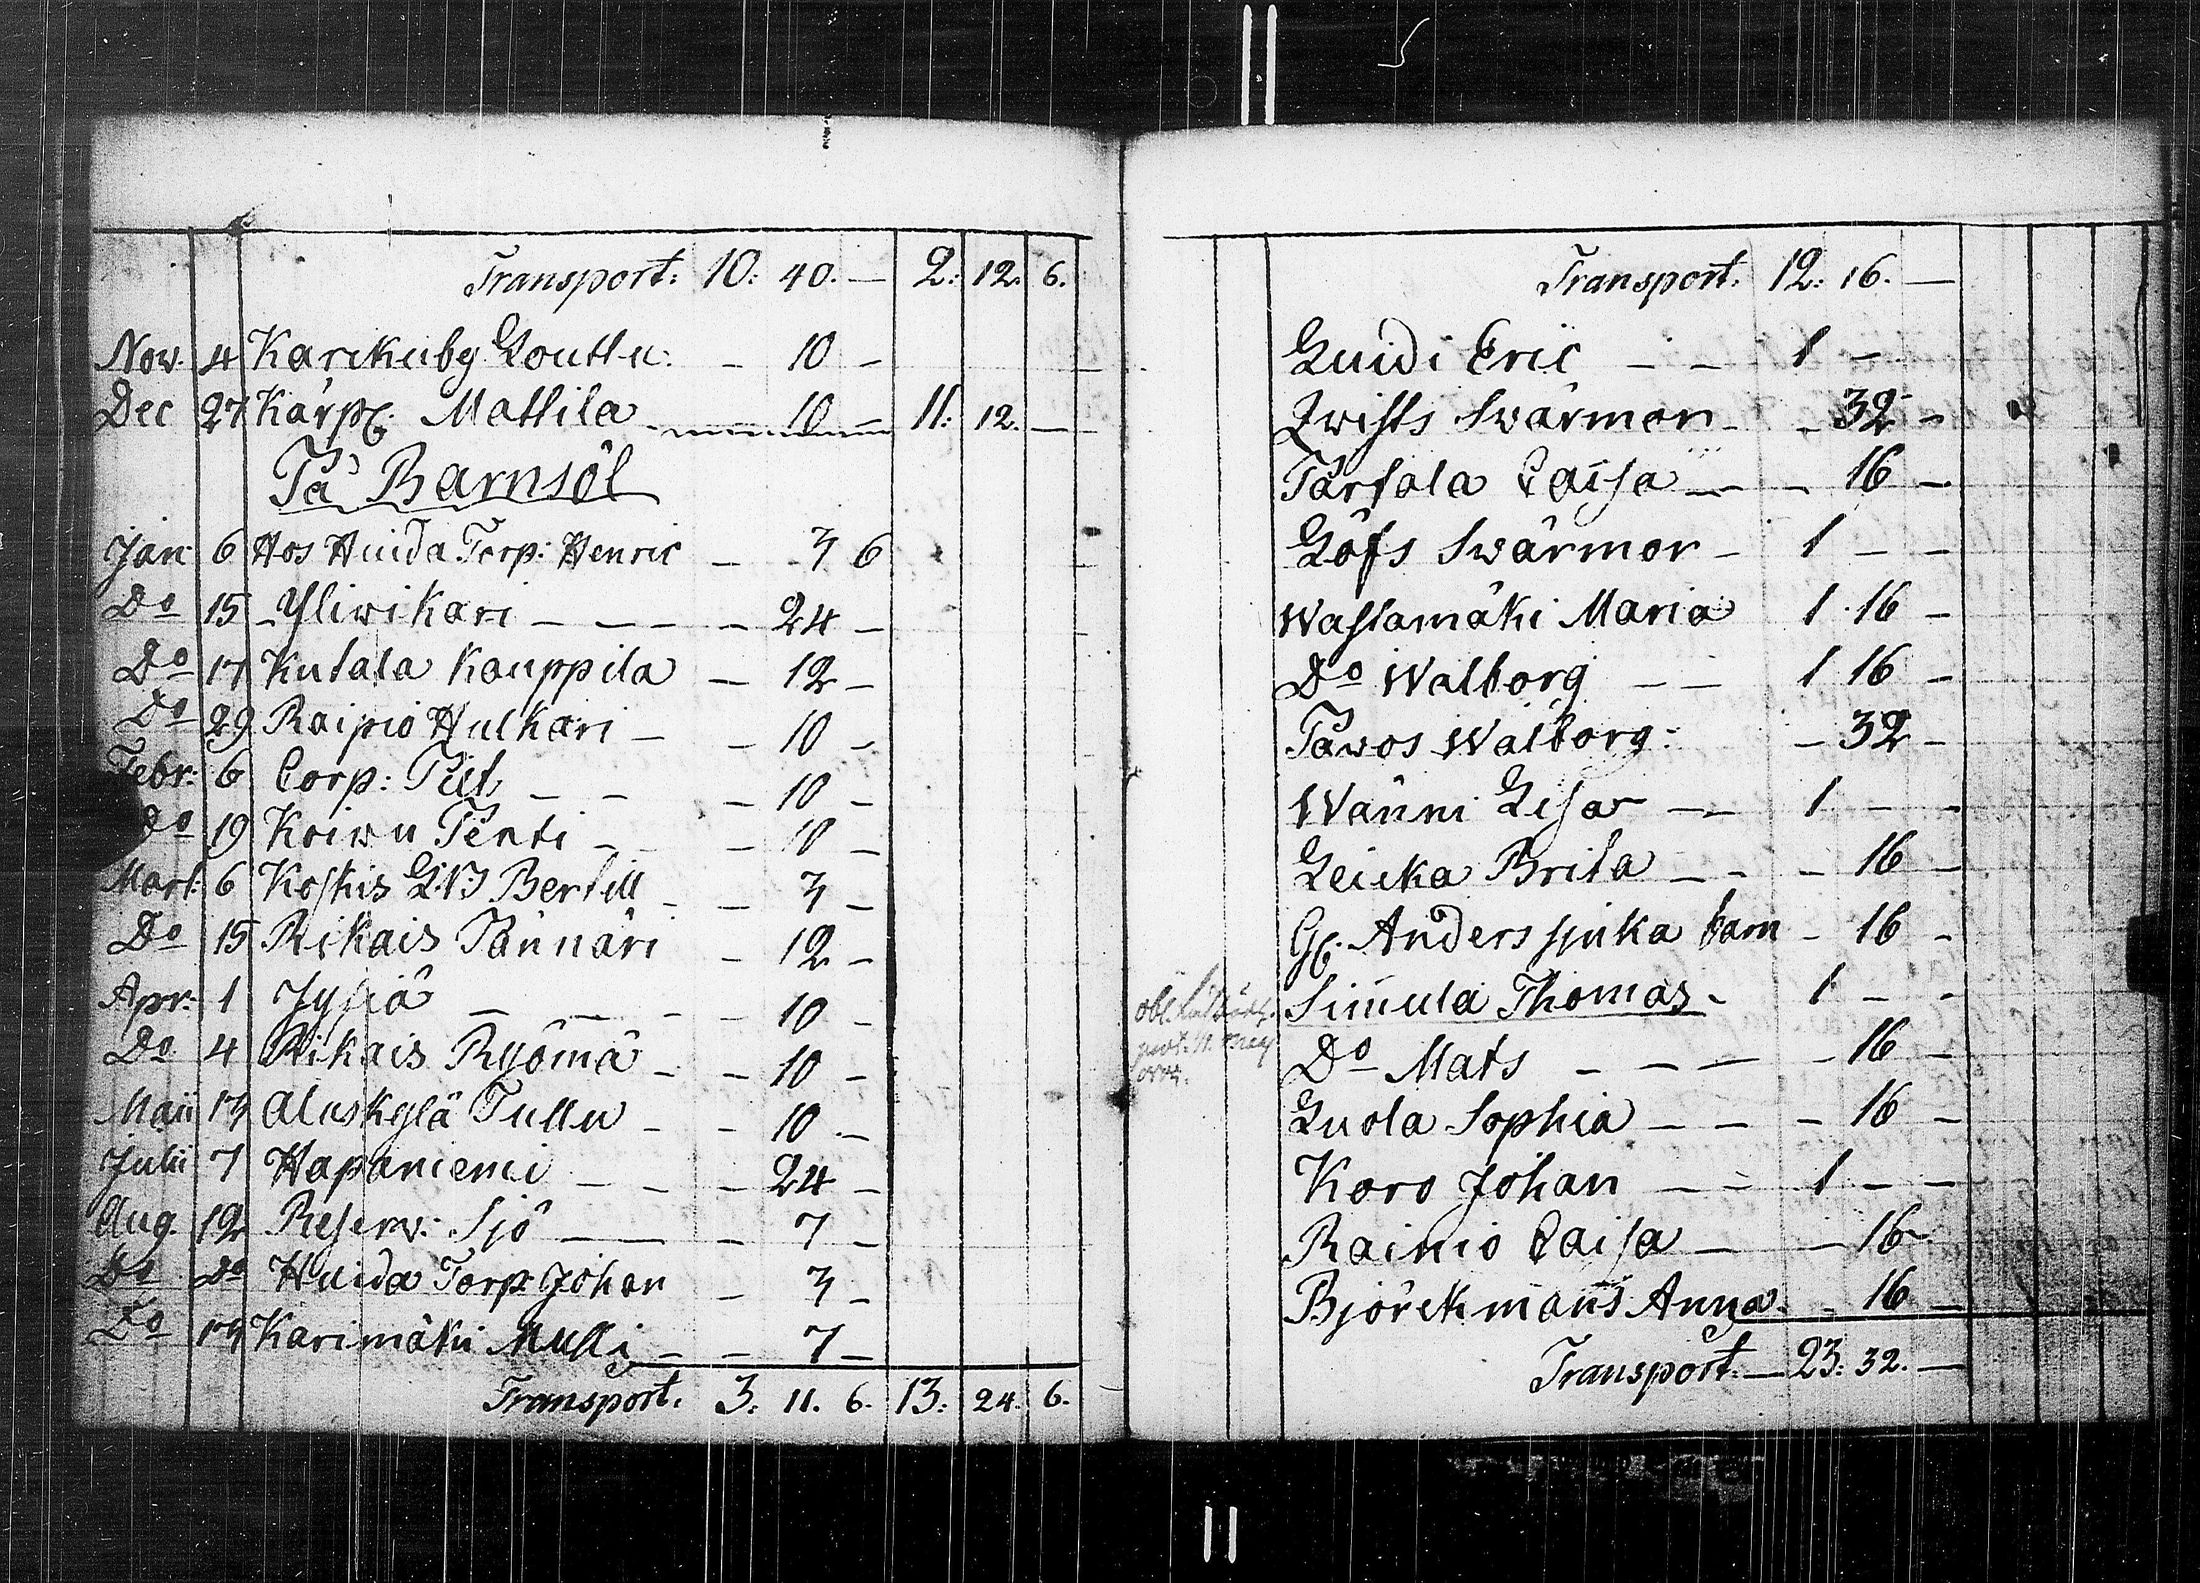 Transport: 10: 40. — 2: 12. 6.
Nov. 4 Karckuby Gouttu: — 10 —
Dec 27 Kärp. Mattila 10 — 11: 12. —
På Barnsöl
Jan: 6 Hos Huida Torp: Henric — 3 6
Do 15 Yliwikari — — — 24 —
Do 17 Kutala Kauppila — 12 —
Do 29 Raipio Hulkari — — 10 —
Febr: 6 Corp: Pilt — — — 10 —
Do 19 Koiwu Penti — — 10 —
Mart: 6 Koskis GB Bertill — — 3 —
Do 15 Rikais Pännäri — 12 —
Apr: 1 Jysiä — — — 10 —
Do 4 Rikais Ryömä — — 10 —
Maii 13 Aluskylä Tullu — — 10 —
Julii 7 Hapaniemi — — — 24 —
Aug. 12 Reserv: Sjö — — — 7 —
Do Do Huida Torp: Johan — 3 —
Do 13 Karimäki Mulli — — 7 —
Transport. 3. 11. 6. 13. 24. 6.
Transport. 12: 16. —
Luidi Eric — — 1 —
Qwists Swärmor — — 32 —
Parsala Caisa — — 16 —
Löfs Swärmor — 1 — —
Wastamäki Maria 1 16 —
Do Walborg — — 1 16 —
Pawos Walborg: — 32 —
Wänni Lisa — — 1 — —
Leicka Brita — — — 16 —
Gl. Anders sjuka barn — 16 —
Simula Thomas — 1 — —
Do Mats — — — — 16 —
Luola Sophia — — — 16 —
Koro Johan — — 1 — —
Rainio Caisa — — 16 —
Björckmans Anna — — 16 —
Transport. — 23: 32. —